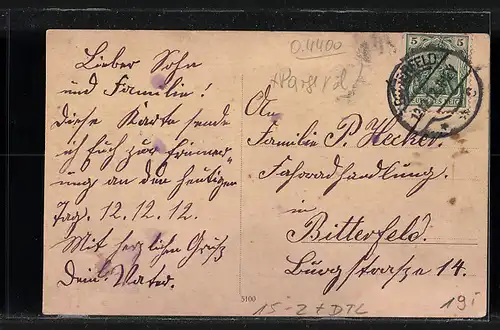 Lieber Sohn
und Familie!
Diese Karte sende
ich Euch zur Erinner-
ung an den heutigen
Tag. 12.12.12.
Mit herzlichen Gruß
Dein Vater.
0.4400
5 5
An
Familie P. Hecker.
Fahrradhandlung.
in
Bitterfeld.
Burgstrasze 14.
5100
15-2 + DTL
19